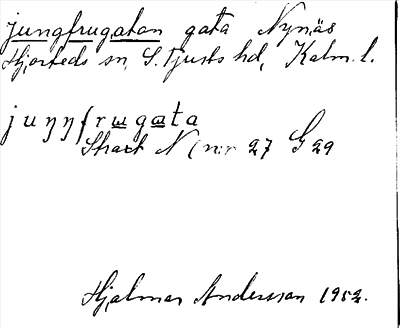 jungfrugatan gata Nynäs
Hjorteds sn, S. Tjusts hd, Kalm. l.
juŋŋfrɯgɑta
N (nr 27 G 29
Hjalmar Andersson 1952.